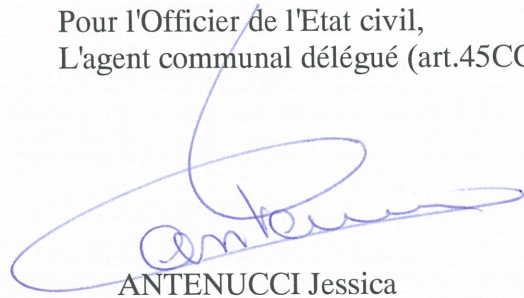 Pour l'Officier de l'Etat civil,
L'agent communal délégué (art.45CC
ANTENUCCI Jessica